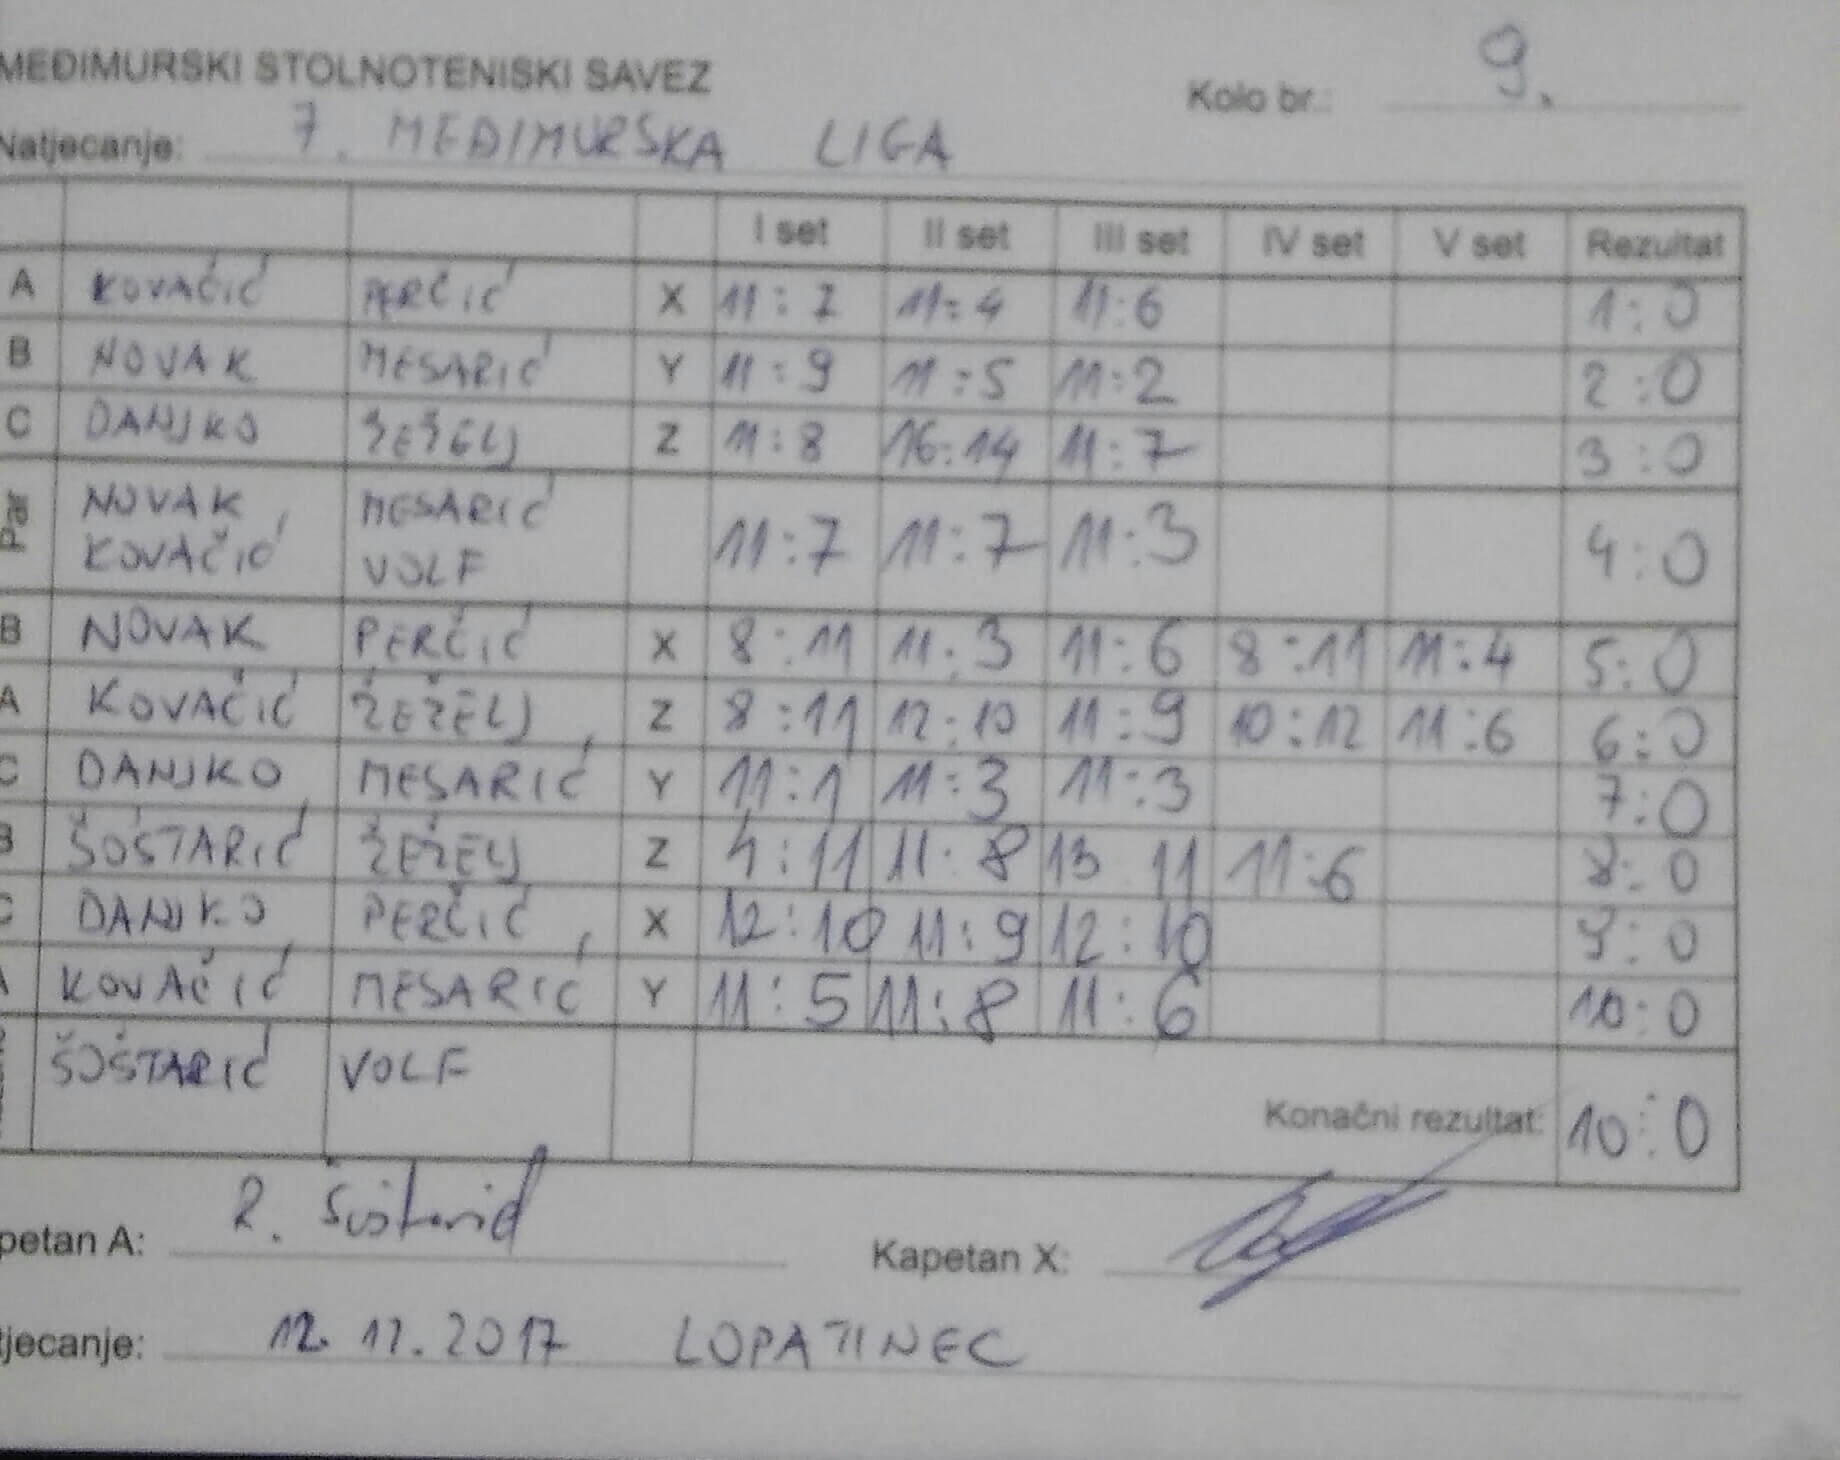 MEĐIMURSKI STOLNOTENISKI SAVEZ
Kolo br.: 9.
Natjecanje: 7. MEĐIMURSKA LIGA
I set II set III set IV set V set Rezultat
A KOVAČIĆ PERČIĆ X 11:7 11:4 11:6 1:0
B NOVAK MESARIĆ Y 11:9 11:5 11:2 2:0
C DANJKO ŽEŽELJ Z 11:8 16:14 11:7 3:0
Par NOVAK MESARIĆ 11:7 11:7 11:3 4:0
KOVAČIĆ VOLF
B NOVAK PERČIĆ X 8:11 11:3 11:6 8:11 11:4 5:0
A KOVAČIĆ ŽEŽELJ Z 8:11 12:10 11:9 10:12 11:6 6:0
C DANJKO MESARIĆ Y 11:1 11:3 11:3 7:0
B ŠOŠTARIĆ ŽEŽELJ Z 4:11 11:8 13 11 11:6 8:0
C DANJKO PERČIĆ X 12:10 11:9 12:10 9:0
A KOVAČIĆ MESARIĆ Y 11:5 11:8 11:6 10:0
ŠOŠTARIĆ VOLF
Konačni rezultat: 10:0
petan A: R. Šoštarić Kapetan X:
tjecanje: 12.12.2017 LOPATINEC